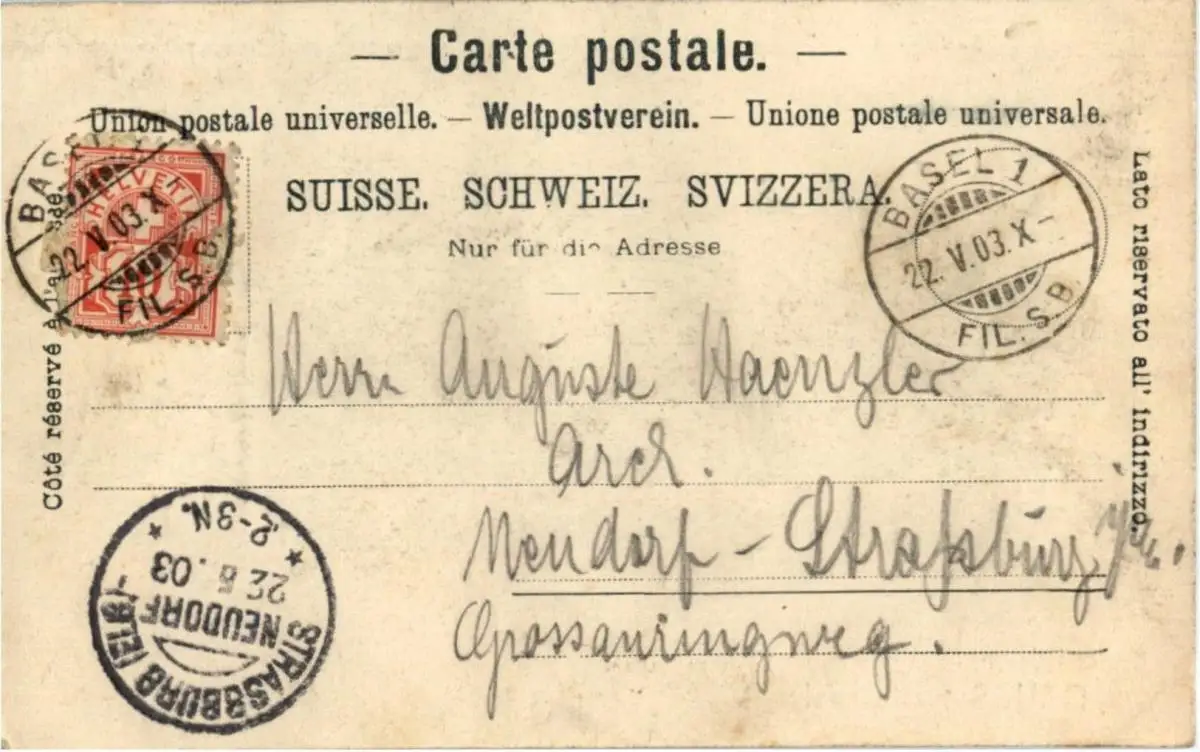 — Carte postale. —
Union postale universelle. — Weltpostverein. — Unione postale universale.
SUISSE. SCHWEIZ. SVIZZERA.
Nur für die Adresse
Côté réservé à
Lato riservato all' indirizzo.
HELVETIA
10
BASEL
22.V.03.X
FIL. S.B.
BASEL 1
22.V.03.X-
FIL. S.B.
Herrn Auguste Haenzler
Arch.
Neudorf - Straßburg
STRASSBURG (ELS)
NEUDORF
22 5.03
2-3N.